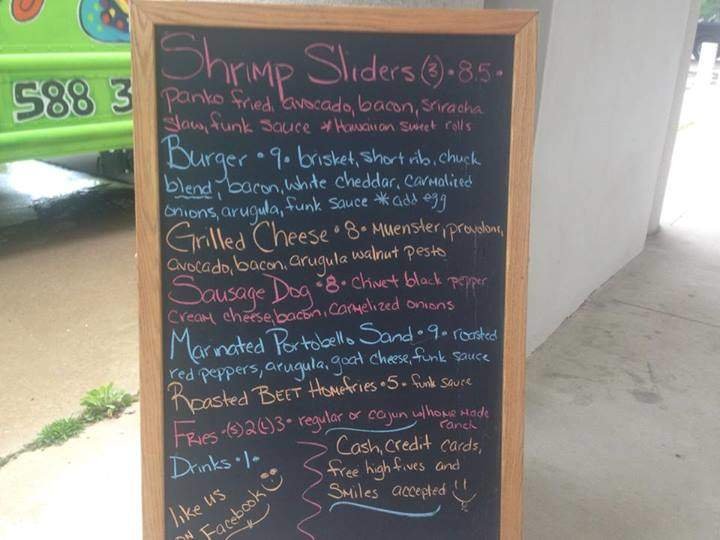 588 3
Shrimp Sliders (3) • 8.5 •
panko fried, avocado, bacon, sriracha
slaw, funk sauce * Hawaiian sweet rolls
Burger • 9 • brisket, short rib, chuck
blend, bacon, white cheddar, carmalized
onions, arugula, funk sauce * add egg
Grilled Cheese • 8 • Muenster, provolone,
avocado, bacon, arugula walnut pesto
Sausage Dog • 8 • chive & black pepper
cream cheese, bacon, carmelized onions
Marinated Portobello Sand • 9 • roasted
red peppers, arugula, goat cheese, funk sauce
Roasted BEET Homefries • 5 • funk sauce
Fries • (s) 2 (L) 3 • regular or cajun w/home made
ranch
Drinks • 1 •
Cash, credit cards,
free high fives and
Smiles accepted !!
like us
on Facebook